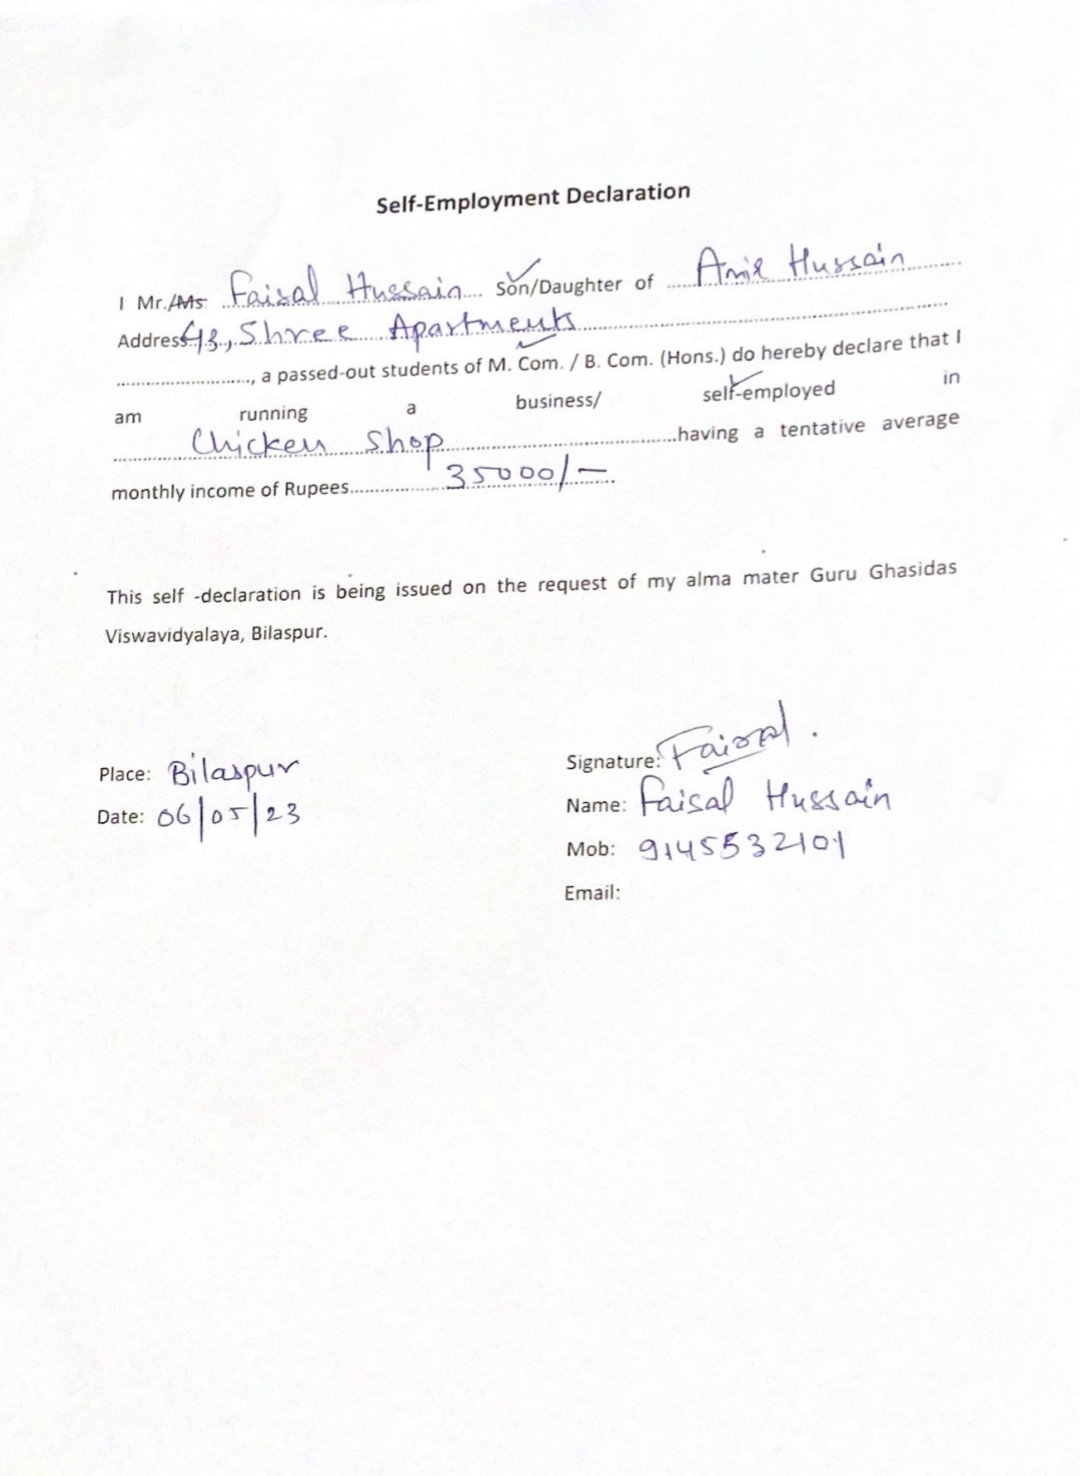 Self-Employment Declaration
I Mr./Ms. Faisal Hussain Son/Daughter of Amir Hussain
Address 43, Shree Apartments
............................, a passed-out students of M. Com. / B. Com. (Hons.) do hereby declare that I
am running a business/ self-employed in
Chicken Shop having a tentative average
monthly income of Rupees 35000/-
This self -declaration is being issued on the request of my alma mater Guru Ghasidas
Viswavidyalaya, Bilaspur.
Place: Bilaspur
Date: 06/05/23
Signature: Faisal.
Name: Faisal Hussain
Mob: 9145532101
Email: